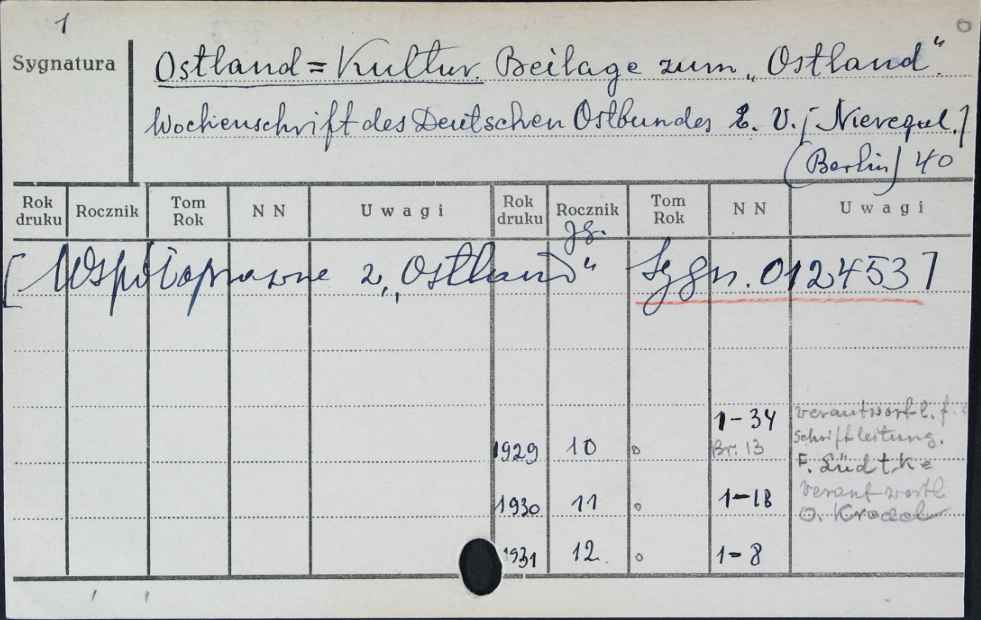 1
Sygnatura
Ostland=Kultur. Beilage zum „Ostland“.
Wochenschrift des Deutschen Ostbundes E. V. [Nieregul.]
(Berlin) 40
Rok druku Rocznik Tom Rok NN Uwagi Rok druku Rocznik Tom Rok NN Uwagi
Jg.
[Współoprawne z „Ostland“ Sygn. 012453]
1-34 verantwortl. f.
1929 10 Br. 13 Schriftleitung.
F. Lüdtke
1930 11 1-18 verantwortl.
O.
1931 12. 1-8